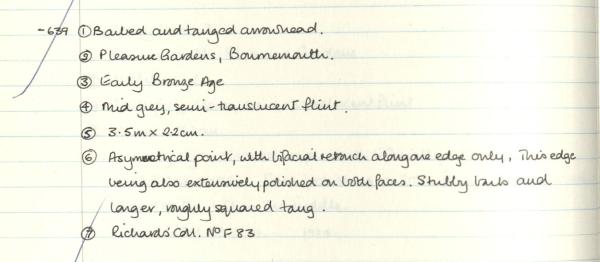 -639 ① Barbed and tanged arrowhead.
② Pleasure Gardens, Bournemouth.
③ Early Bronze Age
④ Mid grey, semi-translucent flint.
⑤ 3.5m x 2.2cm.
⑥ Asymmetrical point, with bifacial retouch along one edge only, This edge
being also extensively polished on both faces. Stubby barbs and
longer, roughly squared tang.
⑦ Richards' Coll. Nº F 83